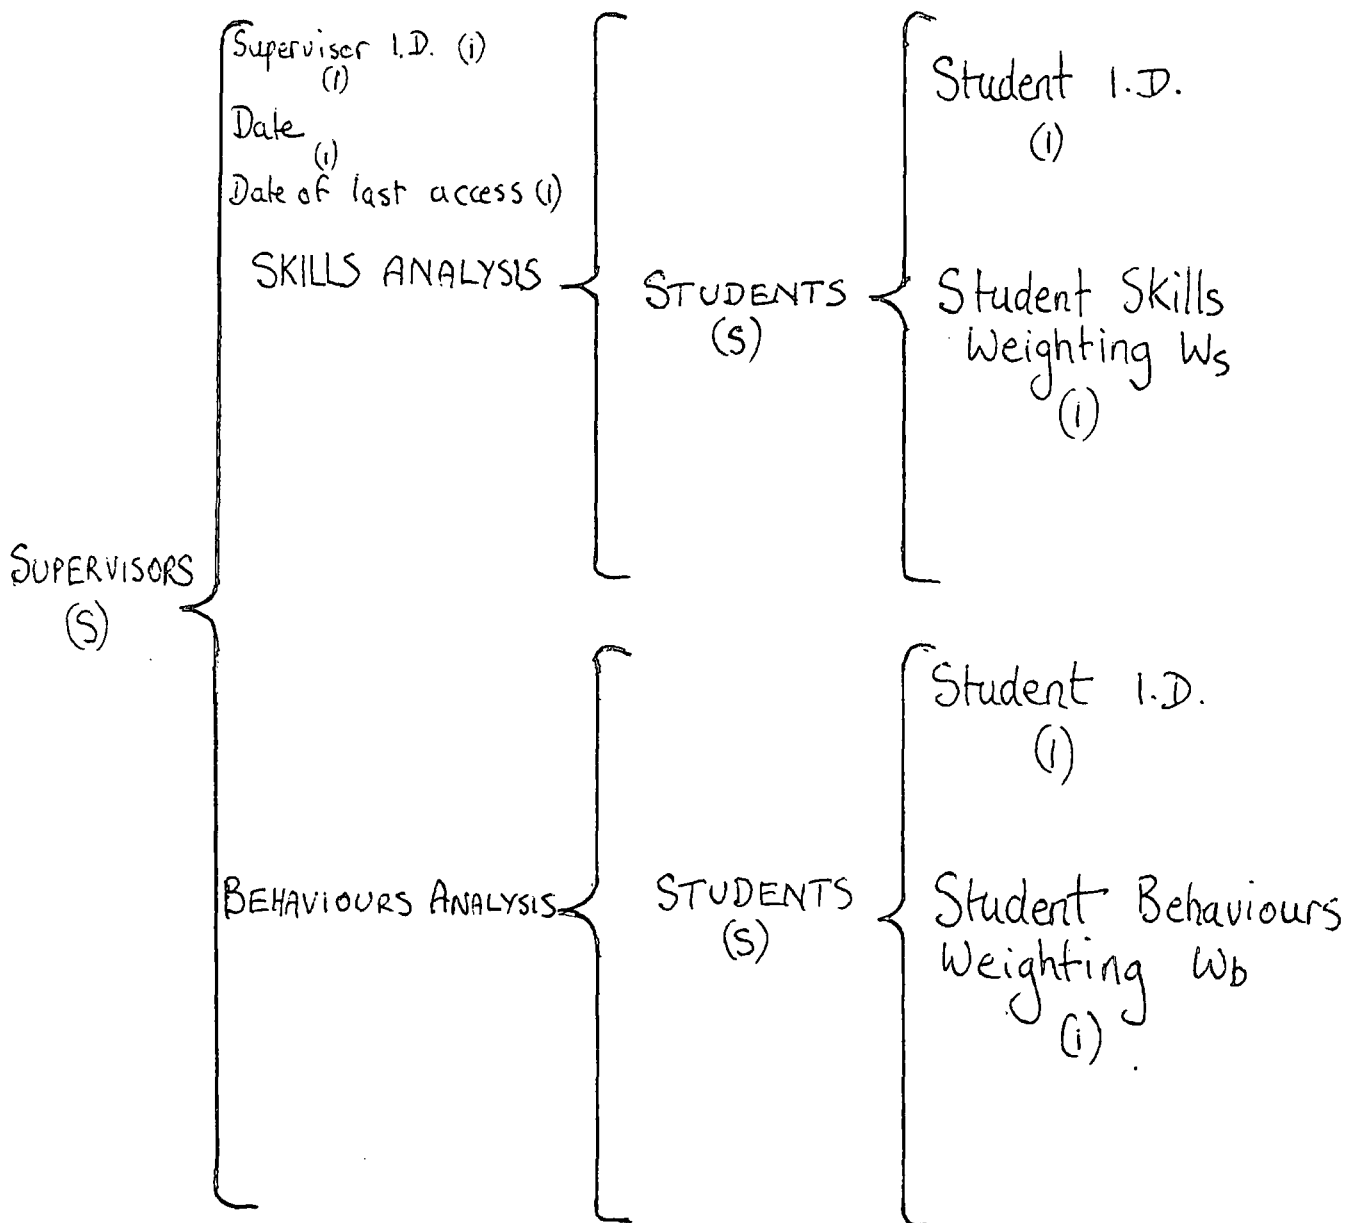 Supervisor I.D. (i)
(1)
Date
(1)
Date of last access (1)
SKILLS ANALYSIS
STUDENTS
(S)
Student I.D.
(1)
Student Skills
Weighting Ws
(1)
SUPERVISORS
(S)
BEHAVIOURS ANALYSIS
STUDENTS
(S)
Student I.D.
(1)
Student Behaviours
Weighting Wb
(i)